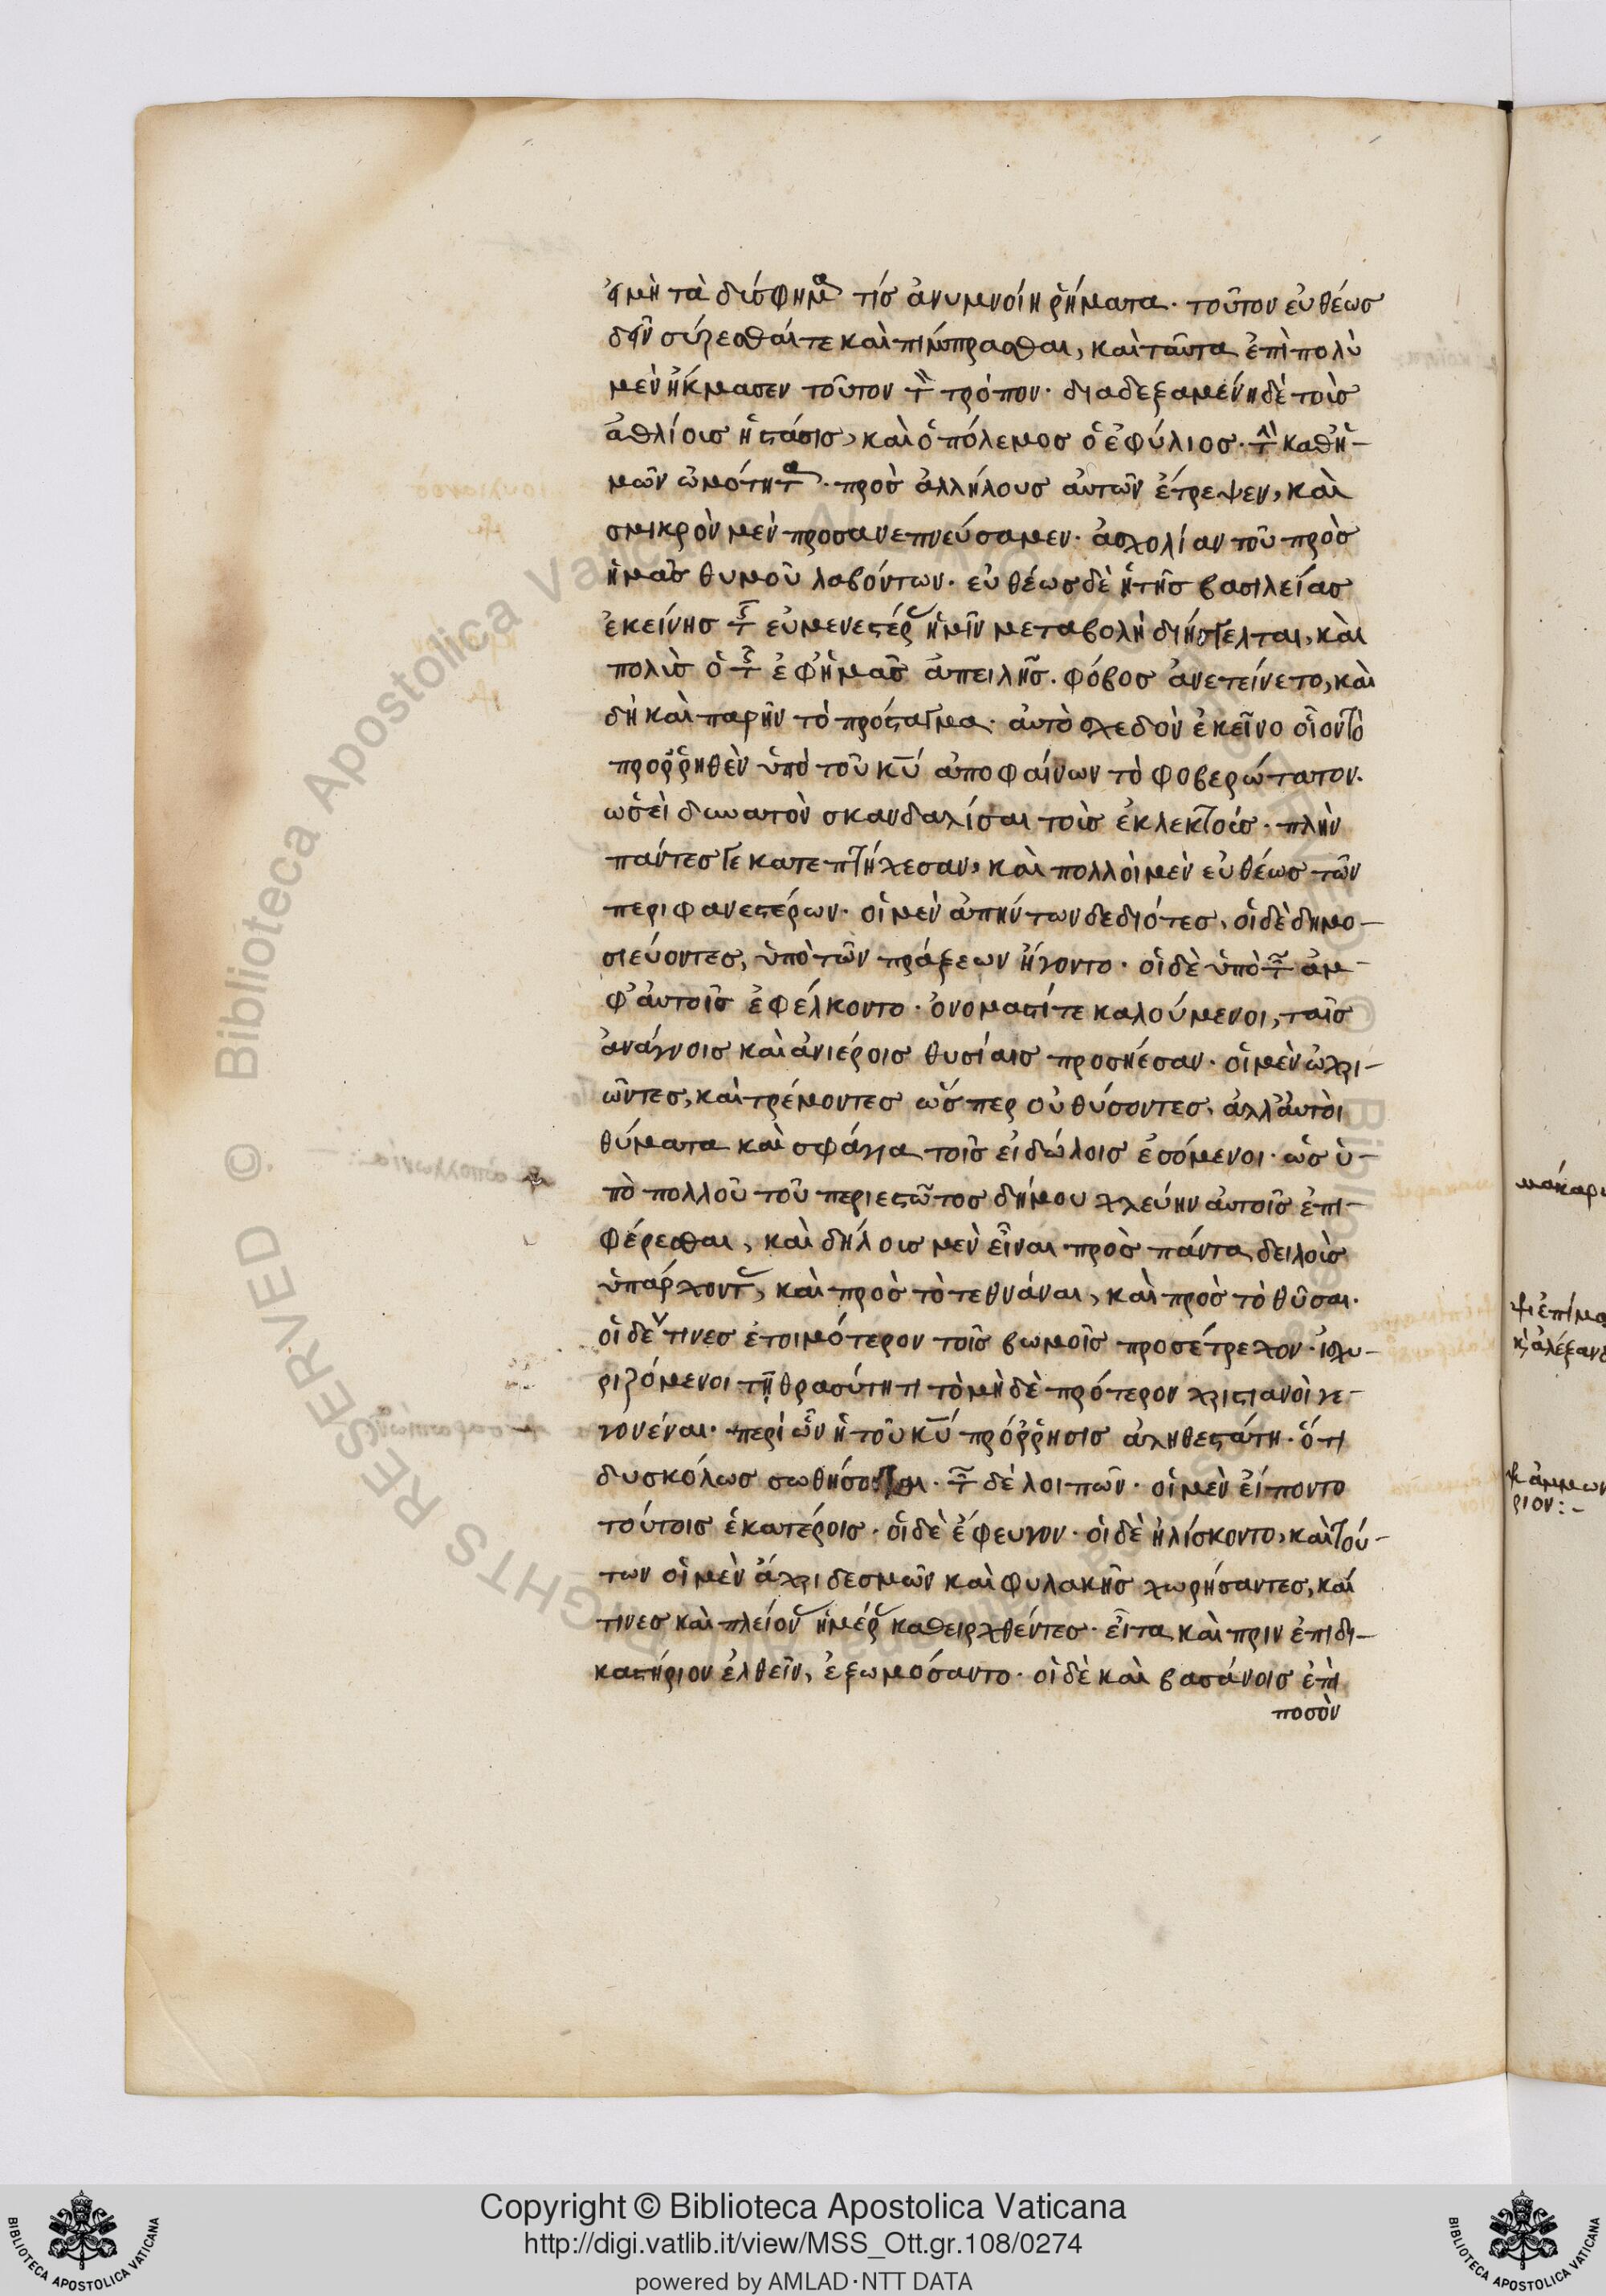 εἰ μὴ τὰ δύσφημα τίσ ἀνυμνοίη ῥήματα. τοῦτον εὐθέωσ
δεῖν σύρεσθαί τε καὶ πίμπρασθαι, καὶ ταῦτα ἐπὶ πολὺ
μὲν ἤκμασεν τοῦτον τὸν τρόπον. διαδεξαμένη δὲ τοὺσ
ἀθλίουσ ἡ στάσισ, καὶ ὁ πόλεμοσ ὁ ἐφύλιοσ. τὴν καθ' ἡ-
μῶν ὠμότητα. πρὸσ ἀλλήλουσ αὐτῶν ἔτρεψεν, καὶ
σμικρὸν μὲν προσανεπνεύσαμεν. ἀσχολίαν τοῦ πρὸσ
ἡμᾶσ θυμοῦ λαβόντων. εὐθέωσ δὲ ἡ τῆσ βασιλείασ
ἐκείνησ τῆσ εὐμενεστέρασ ἡμῖν μεταβολὴ διήγγελται, καὶ
πολὺσ ὁ τῆσ ἐφ' ἡμᾶσ ἀπειλῆσ. φόβοσ ἀνετείνετο, καὶ
δὴ καὶ παρῆν τὸ πρόσταγμα. αὐτὸ σχεδὸν ἐκεῖνο οἷον τὸ
προρρηθὲν ὑπὸ τοῦ κ̅υ̅ ἀποφαίνων τὸ φοβερώτατον.
ὡσ εἰ δυνατὸν σκανδαλίσαι τοὺσ ἐκλεκτούσ. πλὴν
πάντεσ γε κατεπτήχεσαν, καὶ πολλοὶ μὲν εὐθέωσ τῶν
περιφανεστέρων. οἱ μὲν ἀπήντων δεδιότεσ, οἱ δὲ δημο-
σιεύοντεσ, ὑπὸ τῶν πράξεων ἤγοντο. οἱ δὲ ὑπὸ τῶν ἀμ-
φ' αὐτοῖσ ἐφέλκοντο. ὀνομαστί τε καλούμενοι, ταῖσ
ἀνάγνοισ καὶ ἀνιέροισ θυσίαισ προσήεσαν. οἱ μὲν ὠχρι-
ῶντεσ, καὶ τρέμοντεσ ὥσπερ οὐ θύσοντεσ, ἀλλ' αὐτοὶ
θύματα καὶ σφάγια τοῖσ εἰδώλοισ ἐσόμενοι. ὡσ ὑ-
πὸ πολλοῦ τοῦ περιεστῶτοσ δήμου χλεύην αὐτοῖσ ἐπι-
φέρεσθαι, καὶ δήλουσ μὲν εἶναι πρὸσ πάντα δειλοὺσ
ὑπάρχοντασ, καὶ πρὸσ τὸ τεθνάναι, καὶ πρὸσ τὸ θῦσαι.
οἱ δέ τινεσ ἑτοιμότερον τοῖσ βωμοῖσ προσέτρεχον. ἰσχυ-
ριζόμενοι τῇ θρασύτητι τὸ μηδὲ πρότερον χριστιανοὶ γε-
γονέναι. περὶ ὧν ἡ τοῦ κ̅υ̅ πρόρρησισ ἀληθεστάτη. ὅτι
δυσκόλωσ σωθήσονται. τῶν δὲ λοιπῶν. οἱ μὲν εἵποντο
τούτοισ ἑκατέροισ. οἱ δὲ ἔφευγον. οἱ δὲ ἡλίσκοντο, καὶ τού-
των οἱ μὲν ἄχρι δεσμῶν καὶ φυλακῆσ χωρήσαντεσ, καί
τινεσ καὶ πλείονασ ἡμέρασ καθειρχθέντεσ. εἶτα καὶ πριν ἐπι δι-
καστήριον ἐλθεῖν, ἐξωμόσαντο. οἱ δὲ καὶ βασάνοισ ἐπὶ
ποσὸν
Copyright © Biblioteca Apostolica Vaticana
http://digi.vatlib.it/view/MSS_Ott.gr.108/0274
powered by AMLAD·NTT DATA